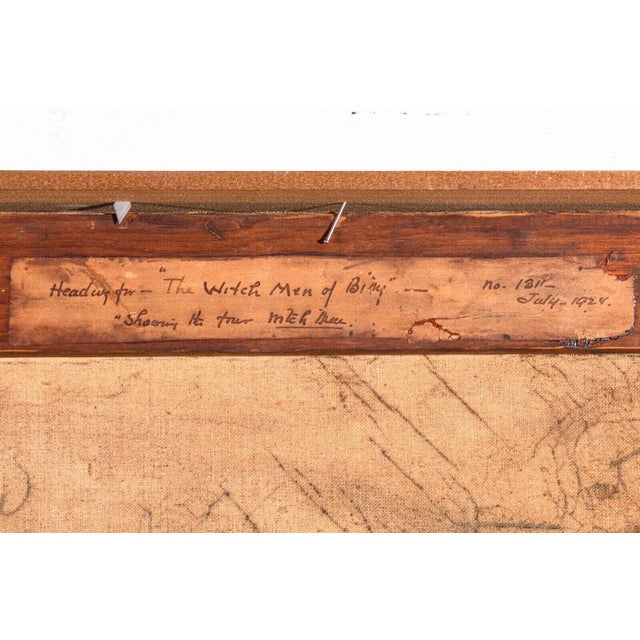 Heading for — "The Witch Men of Biny" — no. 1311—
"Showing the four witch men. July—1924.